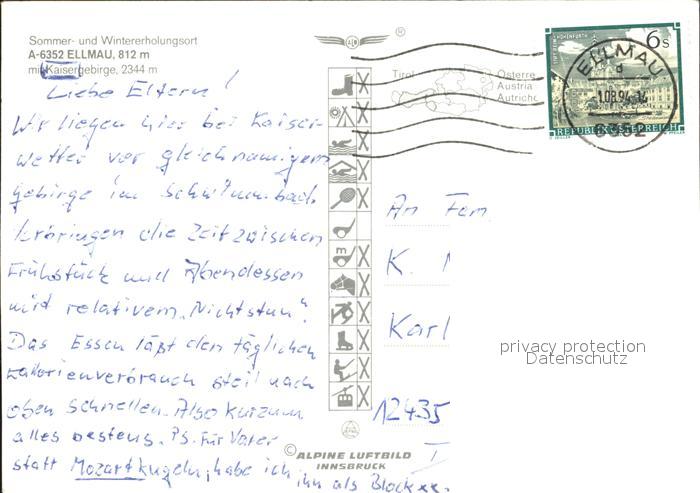 Sommer- und Wintererholungsort
A-6352 ELLMAU, 812 m
mit Kaisergebirge, 2344 m
Liebe Eltern!
Wir liegen hier bei Kaiser-
wetter vor gleichnamigem
Gebirge im Schwimmbad.
Verbringen die Zeit zwischen
Frühstück und Abendessen
mit relativem "Nichtstun".
Das Essen läßt den täglichen
Kalorienverbrauch steil nach
oben schnellen. Also kurzum
alles bestens. Ps. Für Vater
statt Mozartkugeln, habe ich
ihn als
Tirol
Österre
Austria
Autrich
6 s
STIFT REIN-HOHENFURTH
REPUBLIK ÖSTERREICH
ELLMAU
1.08.94
6352
m
An Fam.
K.
Karl
12435
privacy protection
Datenschutz
© ALPINE LUFTBILD
INNSBRUCK